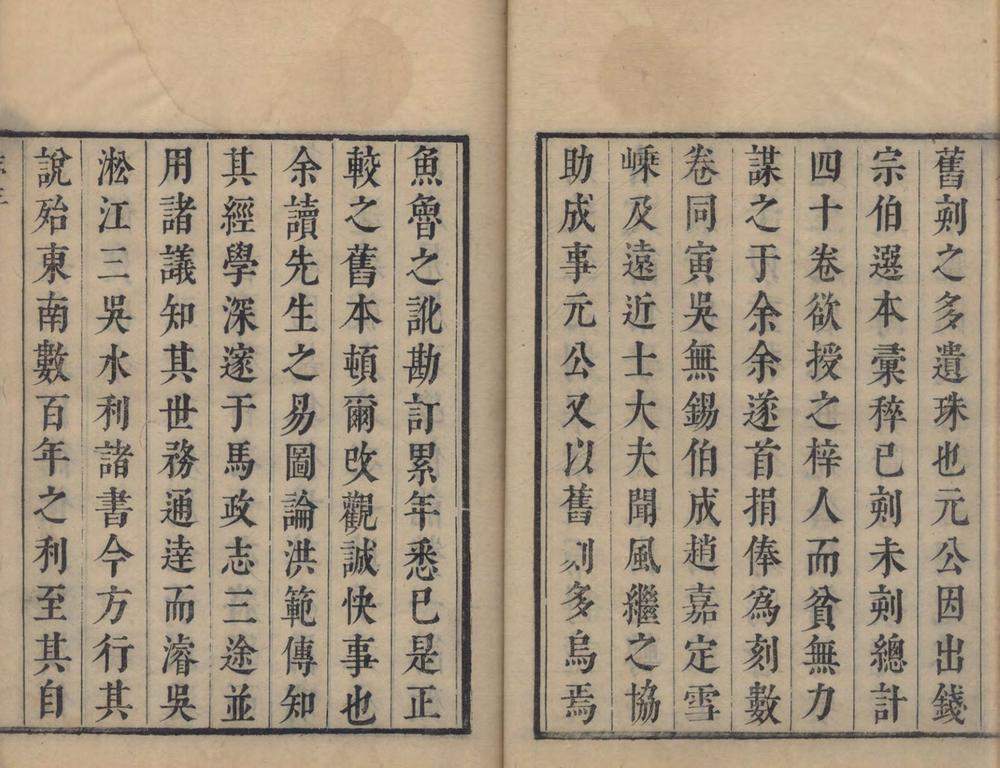 舊刻之多遺珠也元公因出錢
宗伯選本彙稡已刻未刻總計
四十卷欲授之梓人而貧無力
謀之于余余遂首捐俸為刻數
卷同寅吳無錫伯成趙嘉定雪
嵊及遠近士大夫聞風繼之協
助成事元公又以舊刻多烏焉
魚魯之訛勘訂累年悉已是正
較之舊本頓爾改觀誠快事也
余讀先生之易圖論洪範傳知
其經學深邃于馬政志三途並
用諸議知其世務通達而濬吳
淞江三吳水利諸書今方行其
說殆東南數百年之利至其自